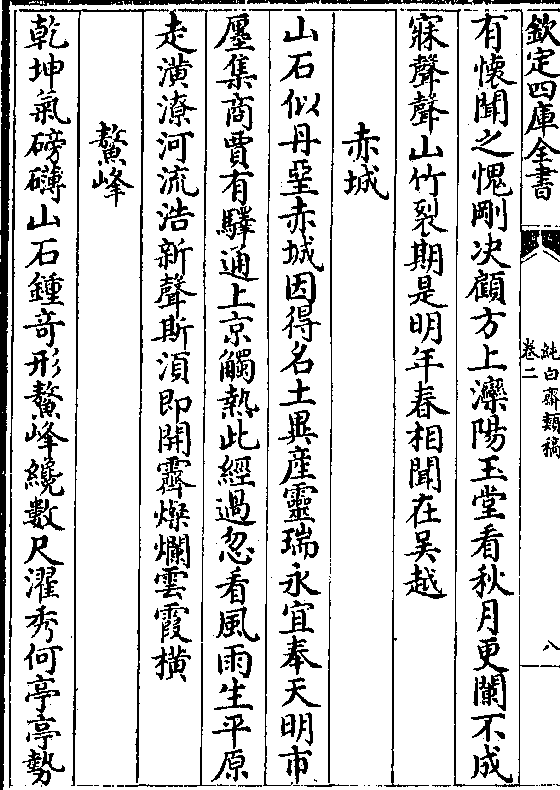 欽定四庫全書
純白齋類稿
卷二
八
有懷聞之愧剛决顧方上灤陽玉堂看秋月更闌不成
寐聲聲山竹裂期是明年春相聞在吴越
赤城
山石似丹堊赤城因得名土異産靈瑞永宜奉天明市
廛集商賈有驛通上京觸熱此經過忽看風雨生平原
走潢潦河流浩新聲斯湏即開霽燦爛雲霞横
鰲峰
乾坤氣磅礴山石鍾竒形鰲峰纔數尺濯秀何亭亭勢